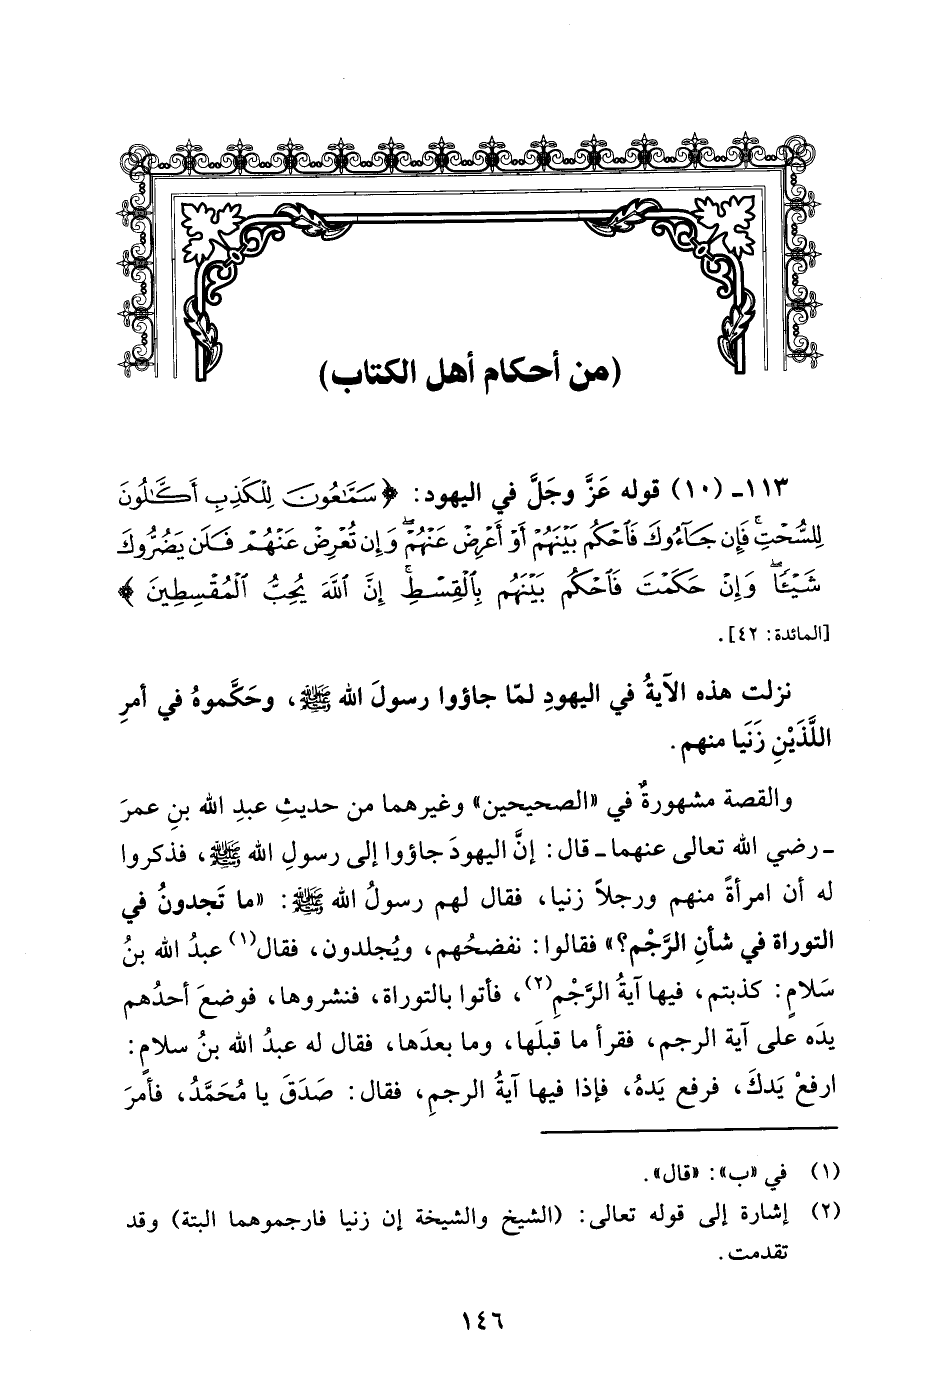 (من أحكام أهل الكتاب)
١١٣ـ (١٠) قوله عَزَّ وجَلَّ في اليهود: ﴿سَمَّٰعُونَ لِلْكَذِبِ أَكَّٰلُونَ
لِلسُّحْتِۚ فَإِن جَآءُوكَ فَٱحْكُم بَيْنَهُمْ أَوْ أَعْرِضْ عَنْهُمْۖ وَإِن تُعْرِضْ عَنْهُمْ فَلَن يَضُرُّوكَ
شَيْـًٔاۖ وَإِنْ حَكَمْتَ فَٱحْكُم بَيْنَهُم بِٱلْقِسْطِۚ إِنَّ ٱللَّهَ يُحِبُّ ٱلْمُقْسِطِينَ﴾
[المائدة: ٤٢].
نزلت هذه الآيةُ في اليهودِ لمّا جاؤوا رسولَ الله ﷺ، وحَكَّموهُ في أمرِ
اللَّذَيْنِ زَنَيا منهم.
والقصة مشهورةٌ في «الصحيحين» وغيرهما من حديثِ عبدِ الله بنِ عمرَ
ـ رضي الله تعالى عنهما ـ قال: إنَّ اليهودَ جاؤوا إلى رسولِ الله ﷺ، فذكروا
له أن امرأةً منهم ورجلاً زنيا، فقال لهم رسولُ الله ﷺ: «ما تَجدونُ في
التوراة في شأنِ الرَّجْم؟» فقالوا: نفضحُهم، ويُجلدون، فقال(١) عبدُ الله بنُ
سَلامٍ: كذبتم، فيها آيةُ الرَّجْمِ(٢)، فأتوا بالتوراة، فنشروها، فوضعَ أحدُهم
يدَه على آية الرجم، فقرأ ما قبلَها، وما بعدَها، فقال له عبدُ الله بنُ سلامٍ:
ارفعْ يَدكَ، فرفع يَدهُ، فإذا فيها آيةُ الرجمِ، فقال: صَدَقَ يا مُحَمَّدُ، فأمرَ
(١) في «ب»: «قال».
(٢) إشارة إلى قوله تعالى: (الشيخ والشيخة إن زنيا فارجموهما البتة) وقد
تقدمت.
١٤٦